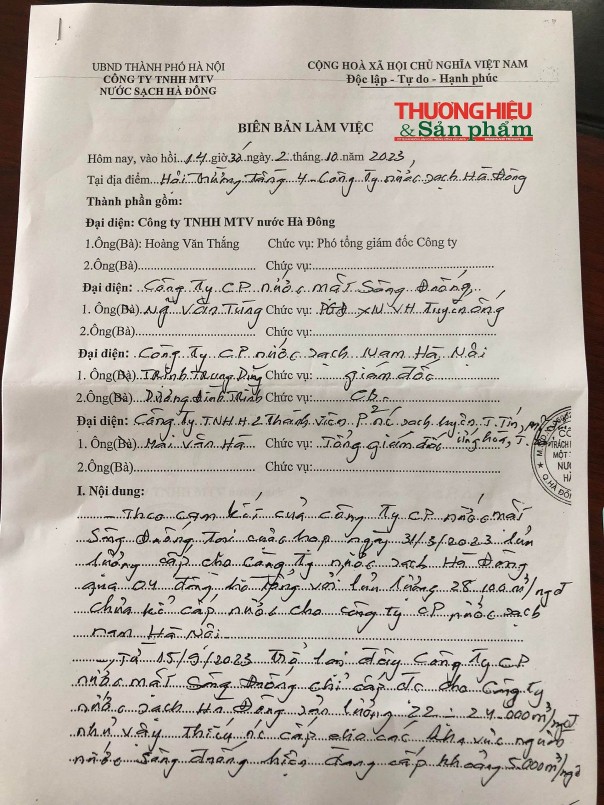 UBND THÀNH PHỐ HÀ NỘI
CÔNG TY TNHH MTV
NƯỚC SẠCH HÀ ĐÔNG
CỘNG HOÀ XÃ HỘI CHỦ NGHĨA VIỆT NAM
Độc lập - Tự do - Hạnh phúc
THƯƠNG HIỆU
& Sản phẩm
BIÊN BẢN LÀM VIỆC
Hôm nay, vào hồi 14 giờ 30 ngày 2 tháng 10 năm 2023
Tại địa điểm Hội trường tầng 4 Công ty nước sạch Hà Đông
Thành phần gồm:
Đại diện: Công ty TNHH MTV nước Hà Đông
1.Ông(Bà): Hoàng Văn Thắng Chức vụ: Phó tổng giám đốc Công ty
2.Ông(Bà) Chức vụ:
Đại diện: Công ty CP nước mặt Sông Đuống
1. Ông(Bà) Ng Văn Tùng Chức vụ: PGĐ XN VH tuyến ống
2. Ông(Bà) Chức vụ:
Đại diện: Công ty CP nước sạch Nam Hà Nội
1. Ông(Bà) Trịnh Trung Dũng Chức vụ: giám đốc
2.Ông(Bà) Dương Đình Chức vụ: CB
Đại diện: Công ty TNHH 2 thành viên nc sạch huyện T. Tín,
1. Ông(Bà) Mai Văn Hà Chức vụ: Tổng giám đốc ứng hòa, T.
2.Ông(Bà) Chức vụ:
I. Nội dung:
- Theo cam kết của Công ty CP nước mặt
Sông Đuống tại cuộc họp ngày 31/3/2023 lưu
lượng cấp cho Công ty nước sạch Hà Đông
qua 04 đồng hồ tổng với lưu lượng 28 100 m³/ngđ
Chưa kể cấp nước cho công ty CP nước sạch
nam Hà Nội
- Từ 15/9/2023 trở lại đây Công ty CP
nước mặt Sông Đuống chỉ cấp đc cho Công ty
nước sạch Hà Đông sản lượng 22 ÷ 24 000 m³/ngđ
như vậy thiếu nc cấp cho các khu vực nguồn
nước Sông đuống hiện đang cấp khoảng 5 000 m³/ngđ